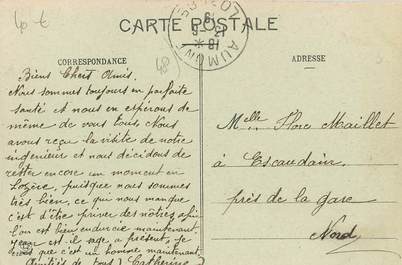 CARTE POSTALE
CORRESPONDANCE
ADRESSE
LOZÈRE
AUMONT
Biens Chers Amis.
Nous sommes toujours en parfaite
santé et nous en espérons de
même de vous tous, Nous
avons reçu la visite de notre
ingénieur et nous décidons de
rester encore un moment en
Lozère, puisque nous sommes
très bien, ce qui nous manque
c'est d'être privés des nôtres, 
l'on est bien endurcie maintenant
est-il sage, a présent, je
vois que c'est un homme maintenant
Amitiés de tous, Catherine
Melle Flore Maillet
à Escaudain
près de la gare
Nord